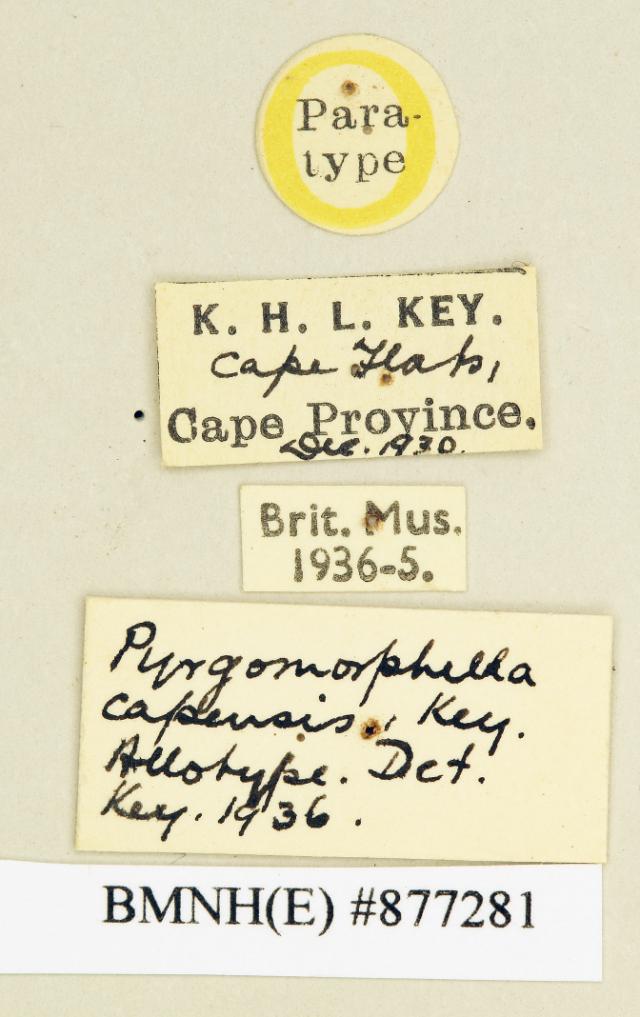 Para-
type
K. H. L. KEY.
Cape Flats,
Cape Province.
Dec. 1930.
Brit. Mus.
1936-5.
Pyrgomorphella
capensis, Key.
Allotype. Det.
Key. 1936.
BMNH(E) #877281